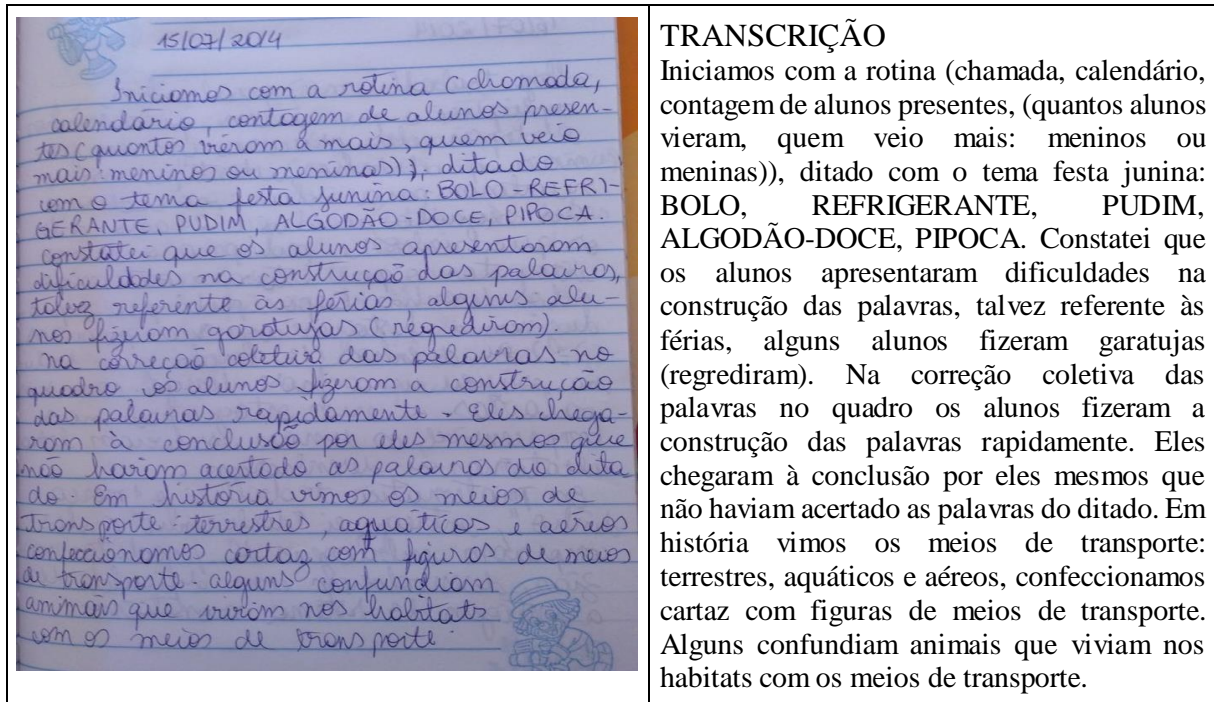 15/07/2014
Iniciamos com a rotina (chamada,
calendário, contagem de alunos presen-
tes (quantos vieram a mais, quem veio
mais: meninos ou meninas)), ditado
com o tema festa junina: BOLO-REFRI-
GERANTE, PUDIM, ALGODÃO-DOCE, PIPOCA.
constatei que os alunos apresentaram
dificuldades na construção das palavras,
talvez referente às férias, alguns alu-
nos fizeram garatujas (regrediram).
na correção coletiva das palavras no
quadro os alunos fizeram a construção
das palavras rapidamente. Eles chega-
ram à conclusão por eles mesmos que
não haviam acertado as palavras do dita
do. Em história vimos os meios de
transporte: terrestres, aquáticos e aéreos
confeccionamos cartaz com figuras de meios
de transporte. alguns confundiam
animais que viviam nos habitats
com os meios de transporte.
TRANSCRIÇÃO
Iniciamos com a rotina (chamada, calendário,
contagem de alunos presentes, (quantos alunos
vieram, quem veio mais: meninos ou
meninas)), ditado com o tema festa junina:
BOLO, REFRIGERANTE, PUDIM,
ALGODÃO-DOCE, PIPOCA. Constatei que
os alunos apresentaram dificuldades na
construção das palavras, talvez referente às
férias, alguns alunos fizeram garatujas
(regrediram). Na correção coletiva das
palavras no quadro os alunos fizeram a
construção das palavras rapidamente. Eles
chegaram à conclusão por eles mesmos que
não haviam acertado as palavras do ditado. Em
história vimos os meios de transporte:
terrestres, aquáticos e aéreos, confeccionamos
cartaz com figuras de meios de transporte.
Alguns confundiam animais que viviam nos
habitats com os meios de transporte.